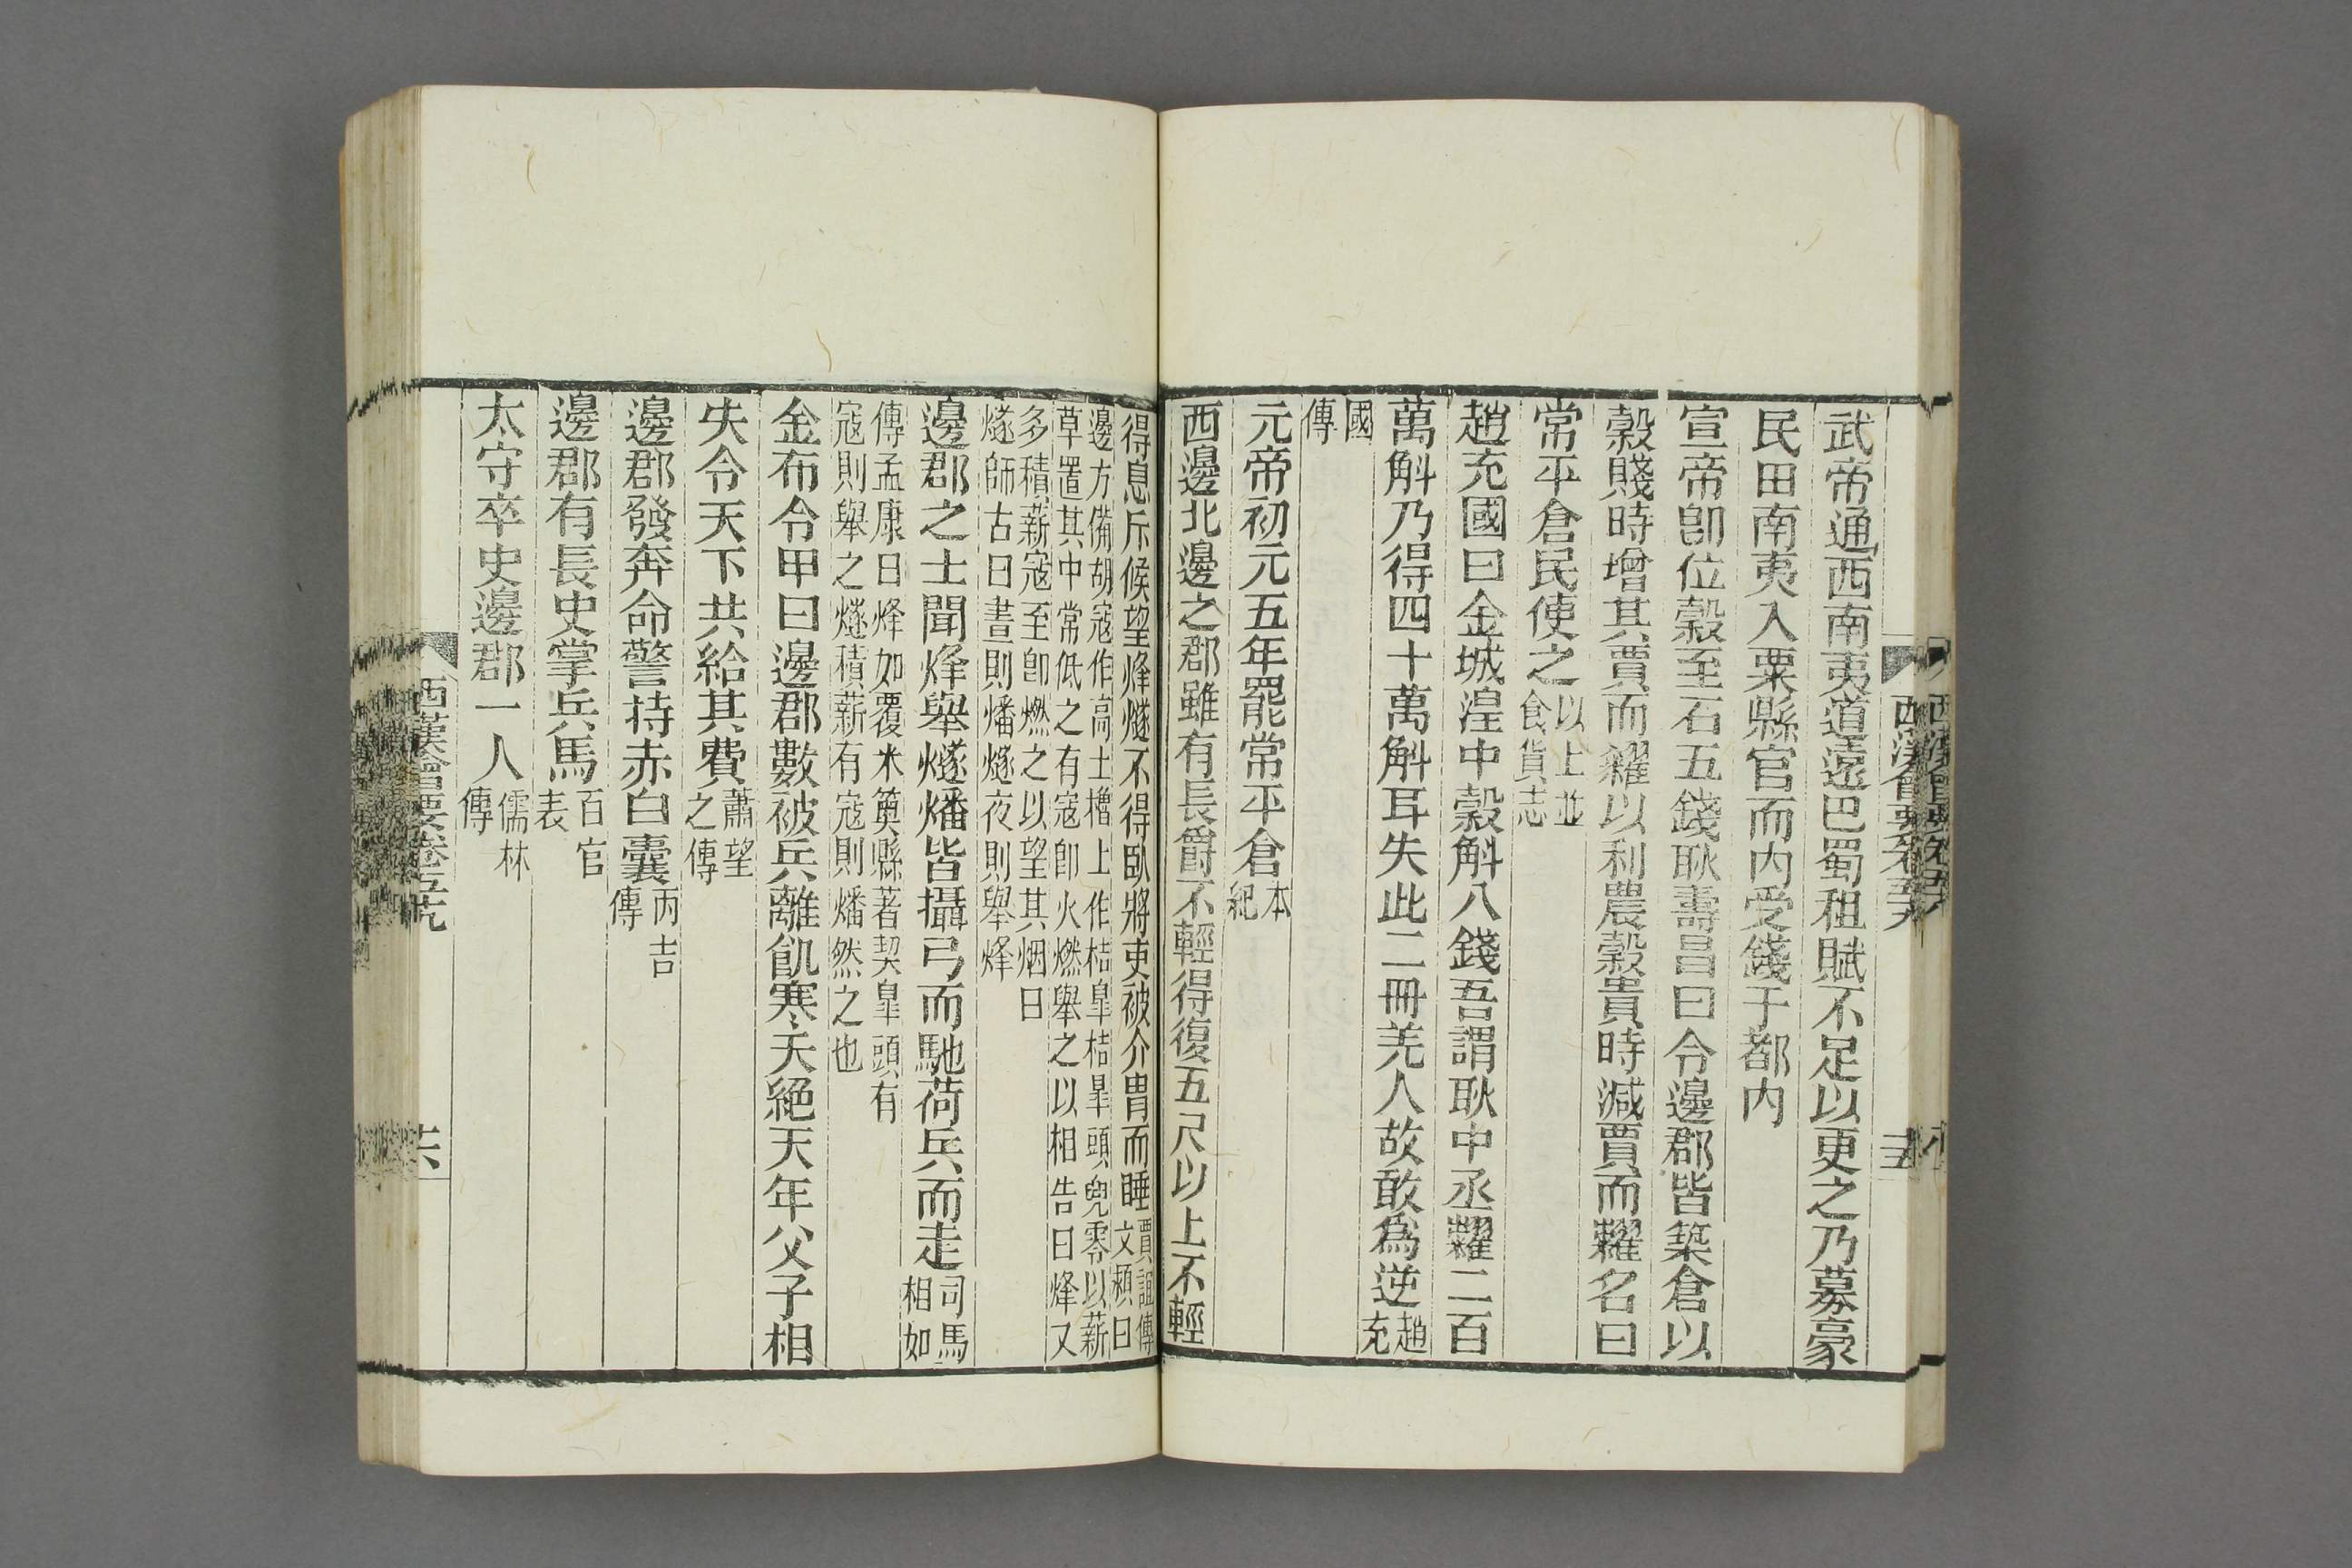 武帝通西南夷道遠巴蜀租賦不足以更之乃募豪
民田南夷入粟縣官而內受錢于都內
宣帝卽位穀至石五錢耿壽昌曰令邊郡皆築倉以
穀賤時增其賈而糴以利農穀貴時減賈而糶名曰
常平倉民使之以上並食貨志
趙充國曰金城湟中穀斛八錢吾謂耿中丞糴二百
萬斛乃得四十萬斛耳失此二冊羌人故敢爲逆趙充
國傳
元帝初元五年罷常平倉本紀
西邊北邊之郡雖有長爵不輕得復五尺以上不輕
得息斥候望烽燧不得臥將吏被介胄而睡賈誼傳文頴曰
邊方備胡寇作高土櫓上作桔皐桔皐頭兜零以薪
草置其中常低之有寇卽火燃舉之以相告曰烽又
多積薪寇至卽燃之以望其烟曰
燧師古曰晝則燔燧夜則舉烽
邊郡之士聞烽舉燧燔皆攝弓而馳荷兵而走司馬相如
傳孟康曰烽如覆米䉛縣著契皐頭有
寇則舉之燧積薪有寇則燔然之也
金布令甲曰邊郡數被兵離飢寒夭絕天年父子相
失令天下共給其費蕭望之傳
邊郡發奔命警持赤白囊丙吉傳
邊郡有長史掌兵馬百官表
太守卒史邊郡一人儒林傳
西漢會要卷五十九